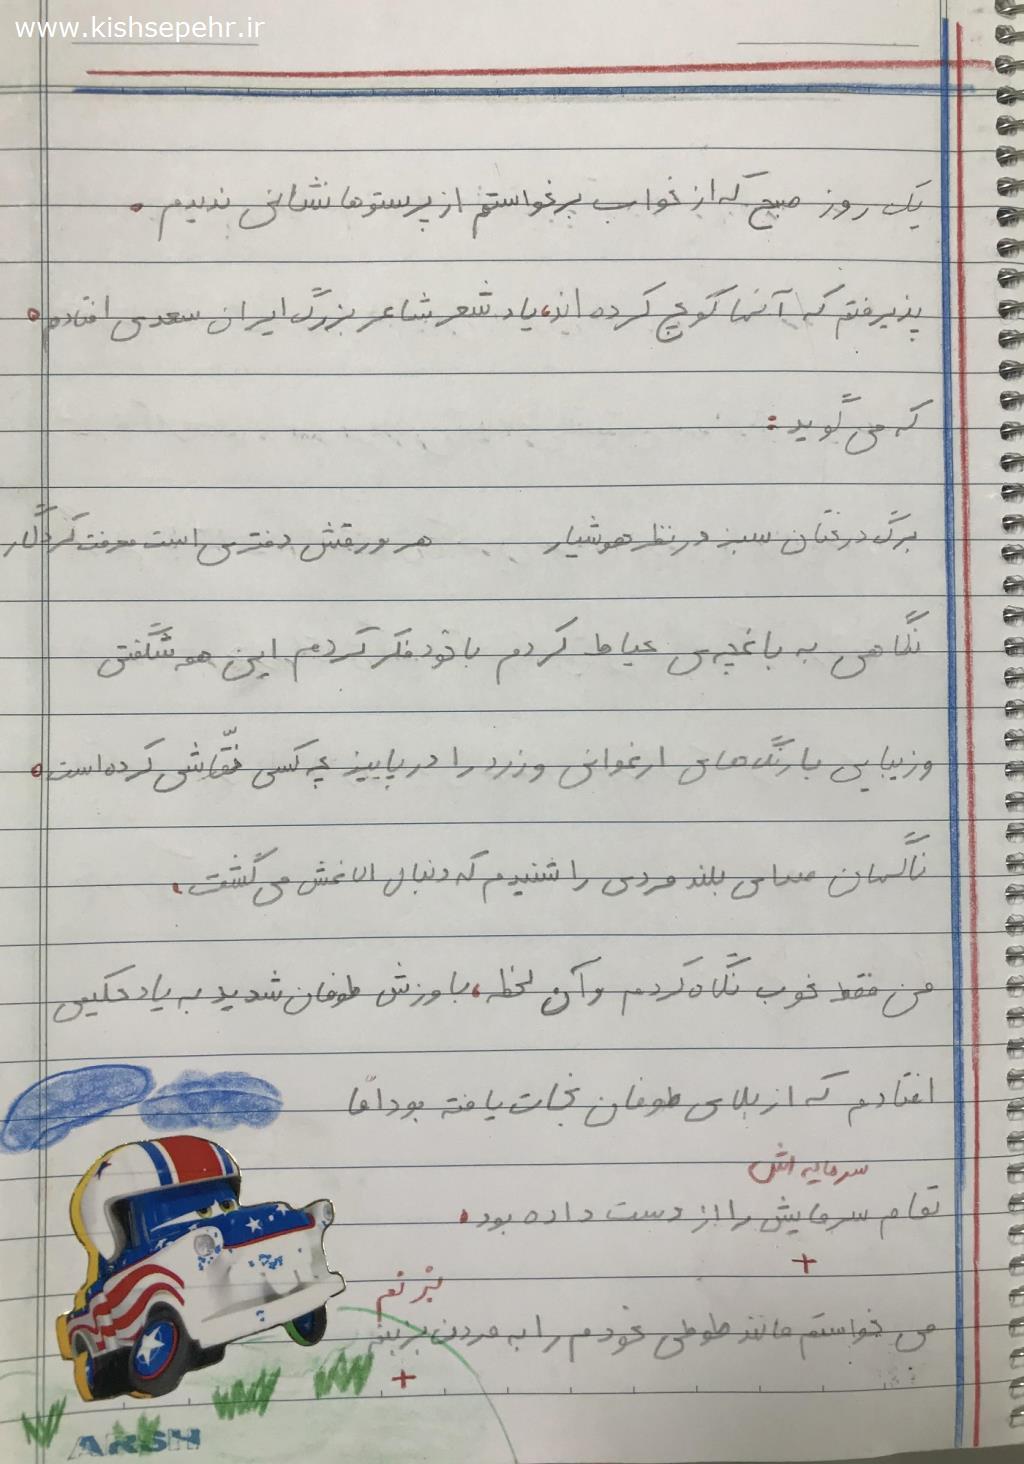 www.kishsepehr.ir
یک روز صبح که از خواب برخواستم از پرستوها نشانی ندیدم .
پذیرفتم که آنها کوچ کرده اند، یاد شعر شاعر بزرگ ایران سعدی افتادم .
که می گوید :
برگ درختان سبز در نظر هوشیار هر ورقش دفتری است معرفت کردگار
نگاهی به باغچه ی حیاط کردم با خود فکر کردم این همه شگفتی
و زیبایی با رنگ های ارغوانی و زرد را در پاییز چه کسی نقّاشی کرده است .
ناگهان صدای بلند مردی را شنیدم که دنبال الاغش می گشت .
من فقط خوب نگاه کردم و آن لحظه ، با وزش طوفان شدید به یاد حکیمی
افتادم که از بلای طوفان نجات یافته بود امّا
سرمایه اش
تمام سرمایش را از دست داده بود .
+
بزنم
می خواستم مانند طوطی خودم را به مردن بزبنم
+
ARSH